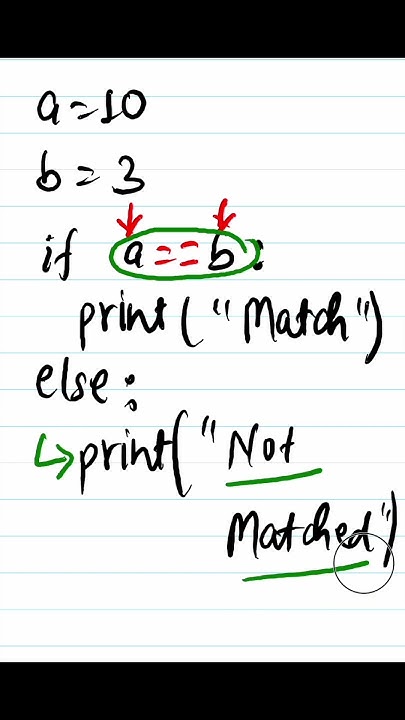 a=10
b = 3
if a == b :
print ( "Match")
else :
print( "Not
Matched")